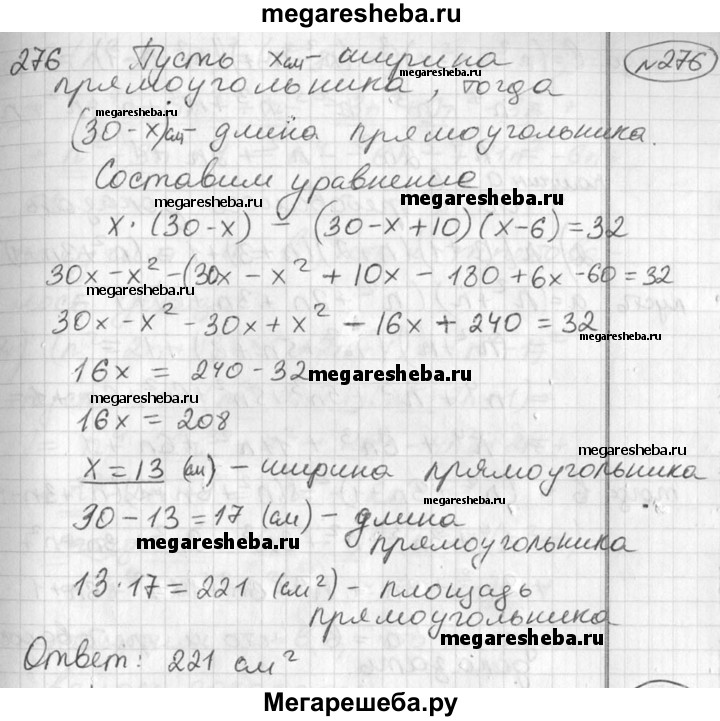 megaresheba.ru
276 Пусть x см - ширина №276
megaresheba.ru
прямоугольника, тогда
megaresheba.ru
(30-x)см - длина прямоугольника.
Составим уравнение
megaresheba.ru megaresheba.ru
x · (30-x) - (30-x+10)(x-6)=32
30x-x²-(30x-x²+10x-180+6x-60=32
megaresheba.ru
30x-x²-30x+x²-16x+240=32
megaresheba.ru
16x = 240-32 megaresheba.ru
16x = 208
x=13 (см) - ширина прямоугольника
megaresheba.ru
30-13=17 (см) - длина
megaresheba.ru прямоугольника
13·17=221 (см²) - площадь
прямоугольника
megaresheba.ru
Ответ: 221 см²
Мегарешеба.ру